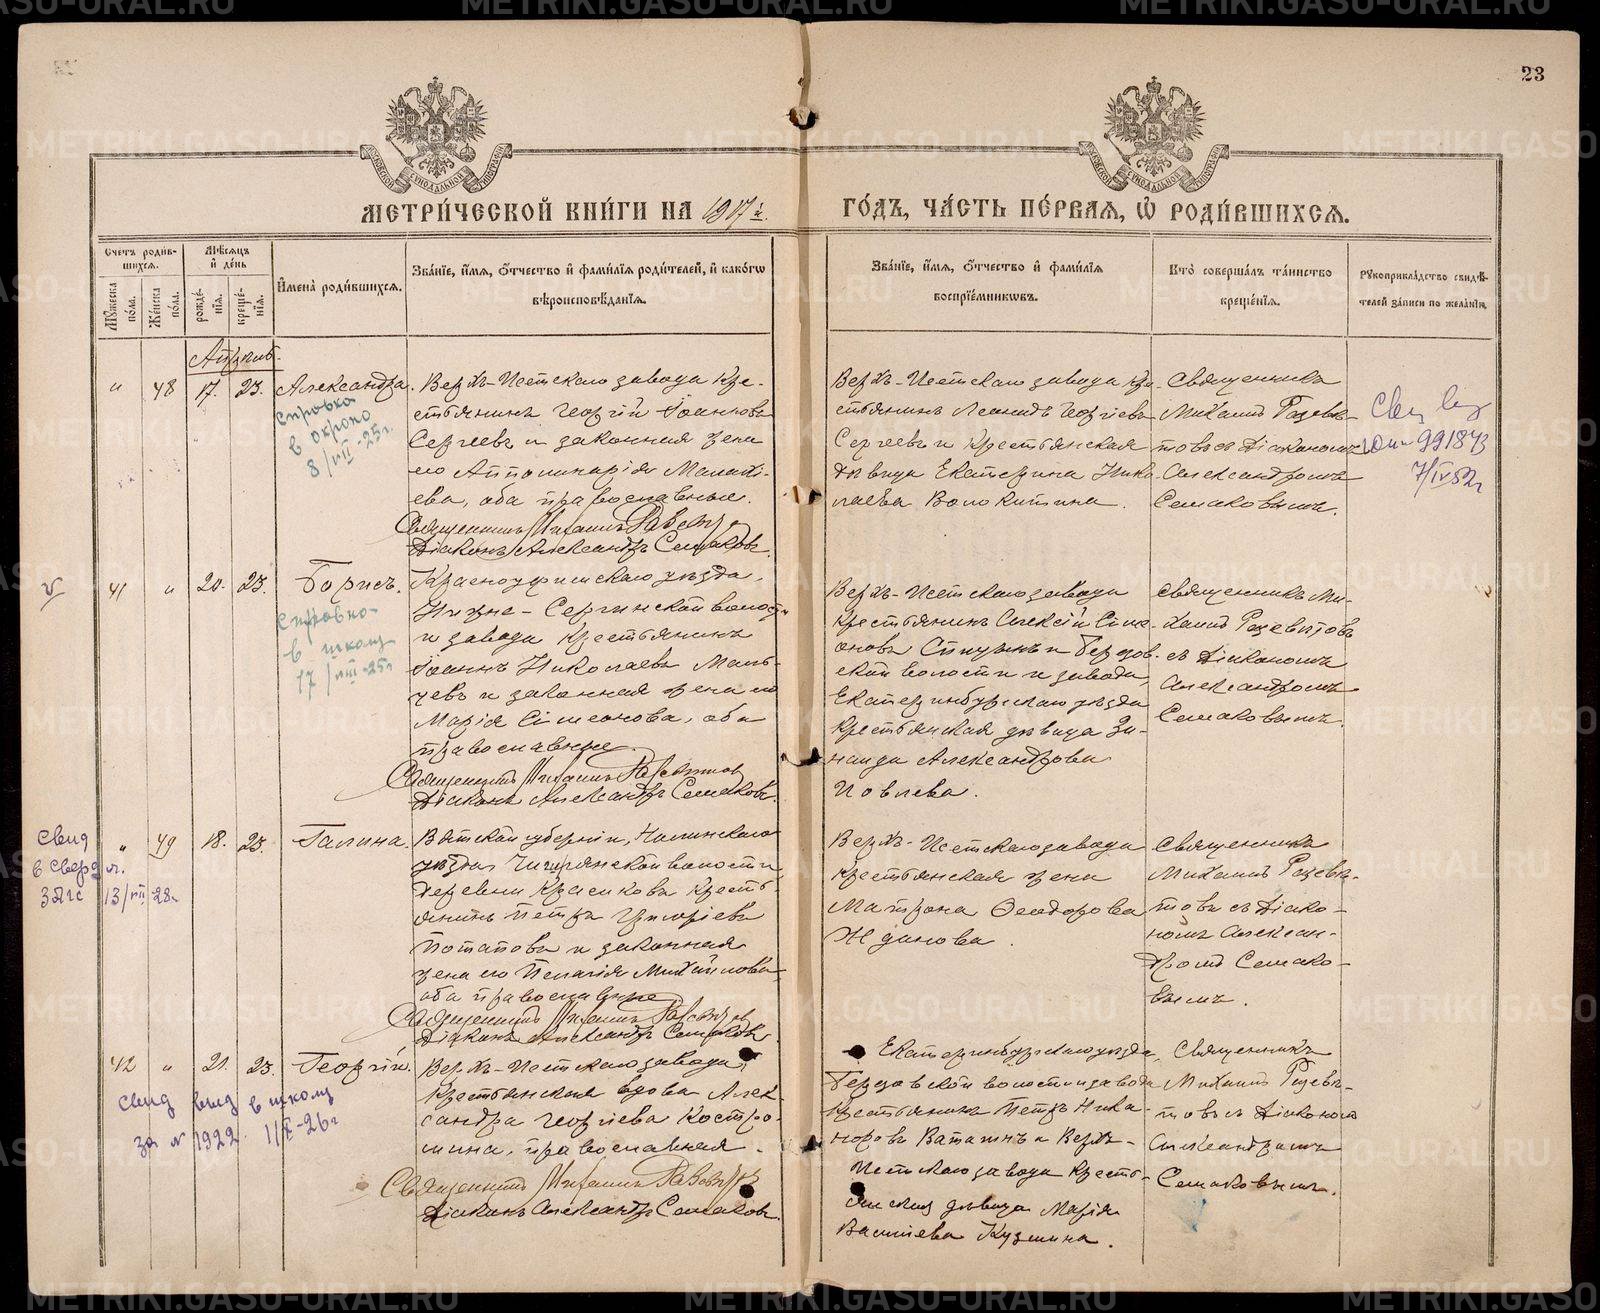 23
МЕТРИ́ЧЕСКОЙ КНИ́ГИ НА 1917 й. ГО́ДЪ, ЧА́СТЬ ПЕ́РВАЯ, Ѡ҆ РОДИ́ВШИХСЯ.
Счетъ роди́вшихся.
Мꙋ́жеска по́ла.
Же́нска по́ла.
Мѣ́сяцъ и҆ де́нь
рожде́нїя.
креще́нїя.
И҆мена̀ роди́вшихся.
Зва́нїе, и҆́мя, ѻ҆́тчество и҆ фами́лїя роди́телей, и҆ како́гѡ
вѣроисповѣ́данїя.
Зва́нїе, и҆́мя, ѻ҆́тчество и҆ фами́лїя
воспрїе́мникѡвъ.
Кто̀ соверша́лъ та́инство
креще́нїя.
Рꙋкоприкла́дство свидѣ́-
телей за́писи по жела́нїю.
Апрѣль.
" 48 17. 23. Александра.
Справка
в
8/VII-25г.
Верхъ-Исетскаго завода кре-
стьянинъ Георгій Іоанновъ
Сергеевъ и законная жена
его Апполинарія
ева, оба православные.
Священникъ Михаилъ
Діаконъ Александръ Семаковъ.
Верхъ-Исетскаго завода кре-
стьянинъ Леонидъ Георгіевъ
Сергеевъ и крестьянская
дѣвица Екатерина Нико-
лаева Волокитина.
Священникъ
Михаилъ
товъ съ Діакономъ
Александромъ
Семаковымъ.
991843
7/IV 52г
41 " 20. 23. Борисъ.
Справка
в школу
17/VIII-25г
Красноуфимскаго уѣзда,
Нижне-Сергинской волости
и завода крестьянинъ
Іоаннъ Николаевъ Маль-
цевъ и законная жена его
Марія Симеонова, оба
православные.
Священникъ Михаилъ
Діаконъ Александръ Семаковъ.
Верхъ-Исетскаго завода
крестьянинъ Алексій Симе-
оновъ и Бердов-
ской волости и завода,
Екатеринбургскаго уѣзда
крестьянская дѣвица Зи-
наида Александрова
Священникъ Ми-
хаилъ
съ Діакономъ
Александромъ
Семаковымъ.
Свид
в Сверд
загс 13/VII 28г
" 49 18. 23. Галина.
Вятской губерніи, Нолинскаго
уѣзда волости
деревни Красикова кресть-
янинъ Петръ Григоріевъ
Потаповъ и законная
жена его Пелагія Михайлова,
оба православные
Священникъ Михаилъ
Діаконъ Александръ Семаковъ.
Верхъ-Исетскаго завода
крестьянская жена
Матрона Ѳеодорова
Жданова.
Священникъ
Михаилъ
товъ съ Діако-
номъ Алексан-
дромъ Семако-
вымъ.
42 " 21. 23. Георгій.
свид выд в школу
за № 1922 1/X-26г
Верхъ-Исетскаго завода
крестьянская вдова Алек-
сандра Георгіева Костро-
мина, православная.
Священникъ Михаилъ
Діаконъ Александръ Семаковъ.
Екатеринбургскаго уѣзда,
Бердовской волости и завода
крестьянинъ Петръ Ника-
норовъ Ватагинъ и Верхъ-
Исетскаго завода кресть-
янская дѣвица Марія
Васильева Кузмина.
Священникъ
Михаилъ
товъ съ Діакономъ
Александромъ
Семаковымъ.
METRIKI.GASO-URAL.RU